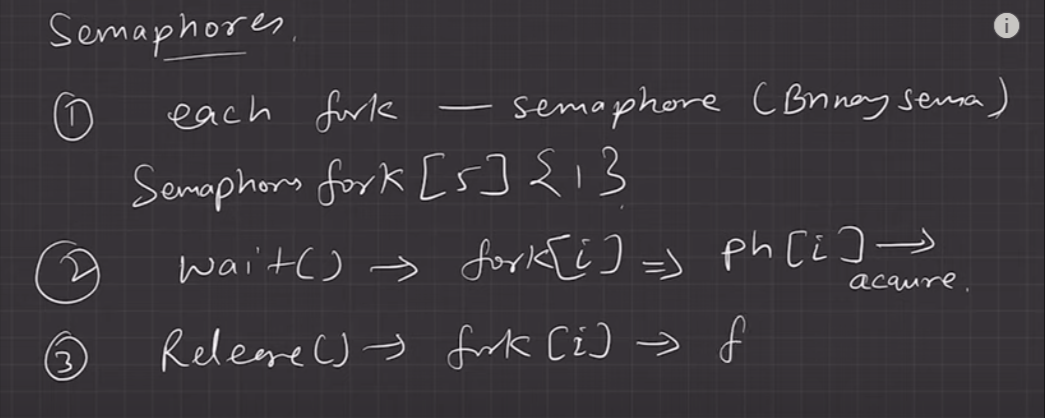 Semaphores.
① each fork — semaphore (Binary sema)
Semaphors fork [5] {1}
② wait() → fork[i] => ph[i] →
acquire.
③ Release() → fork [i] → f